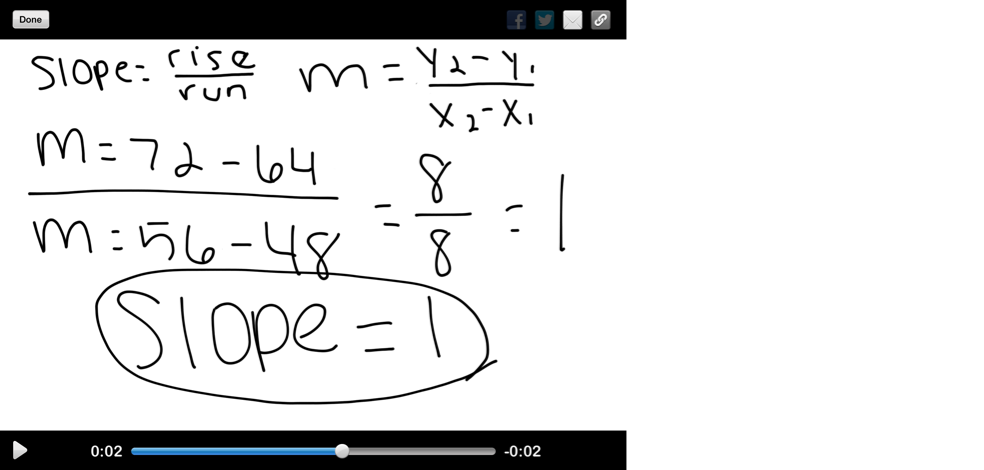 Done
Slope = rise/run m = y₂ - y₁/x₂ - x₁
m = 72 - 64
m = 56 - 48
= 8/8 = 1
Slope = 1
0:02 -0:02